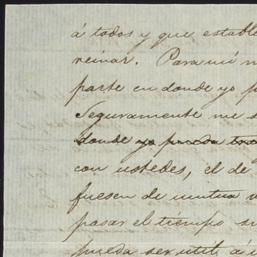 á todos y que estable
reinar. Para mí n
parte en donde yo p
Seguramente me s
donde yo pueda tra
con ustedes, él de
fuesen de mutua v
pasar el tiempo s
pueda ser util á